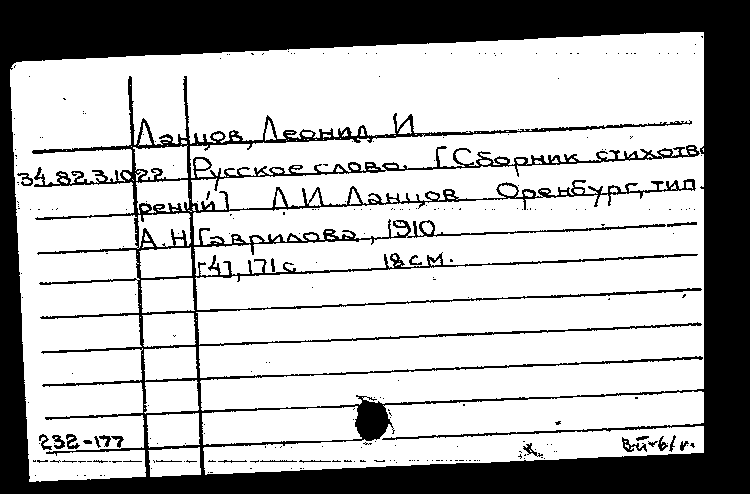 Ланцов, Леонид И
34.82.3.1022 Русское слово. [Сборник стихотво
рений] Л.И. Ланцов Оренбург, тип.
А.Н. Гаврилова, 1910.
[4], 171 с 18 см.
232-177